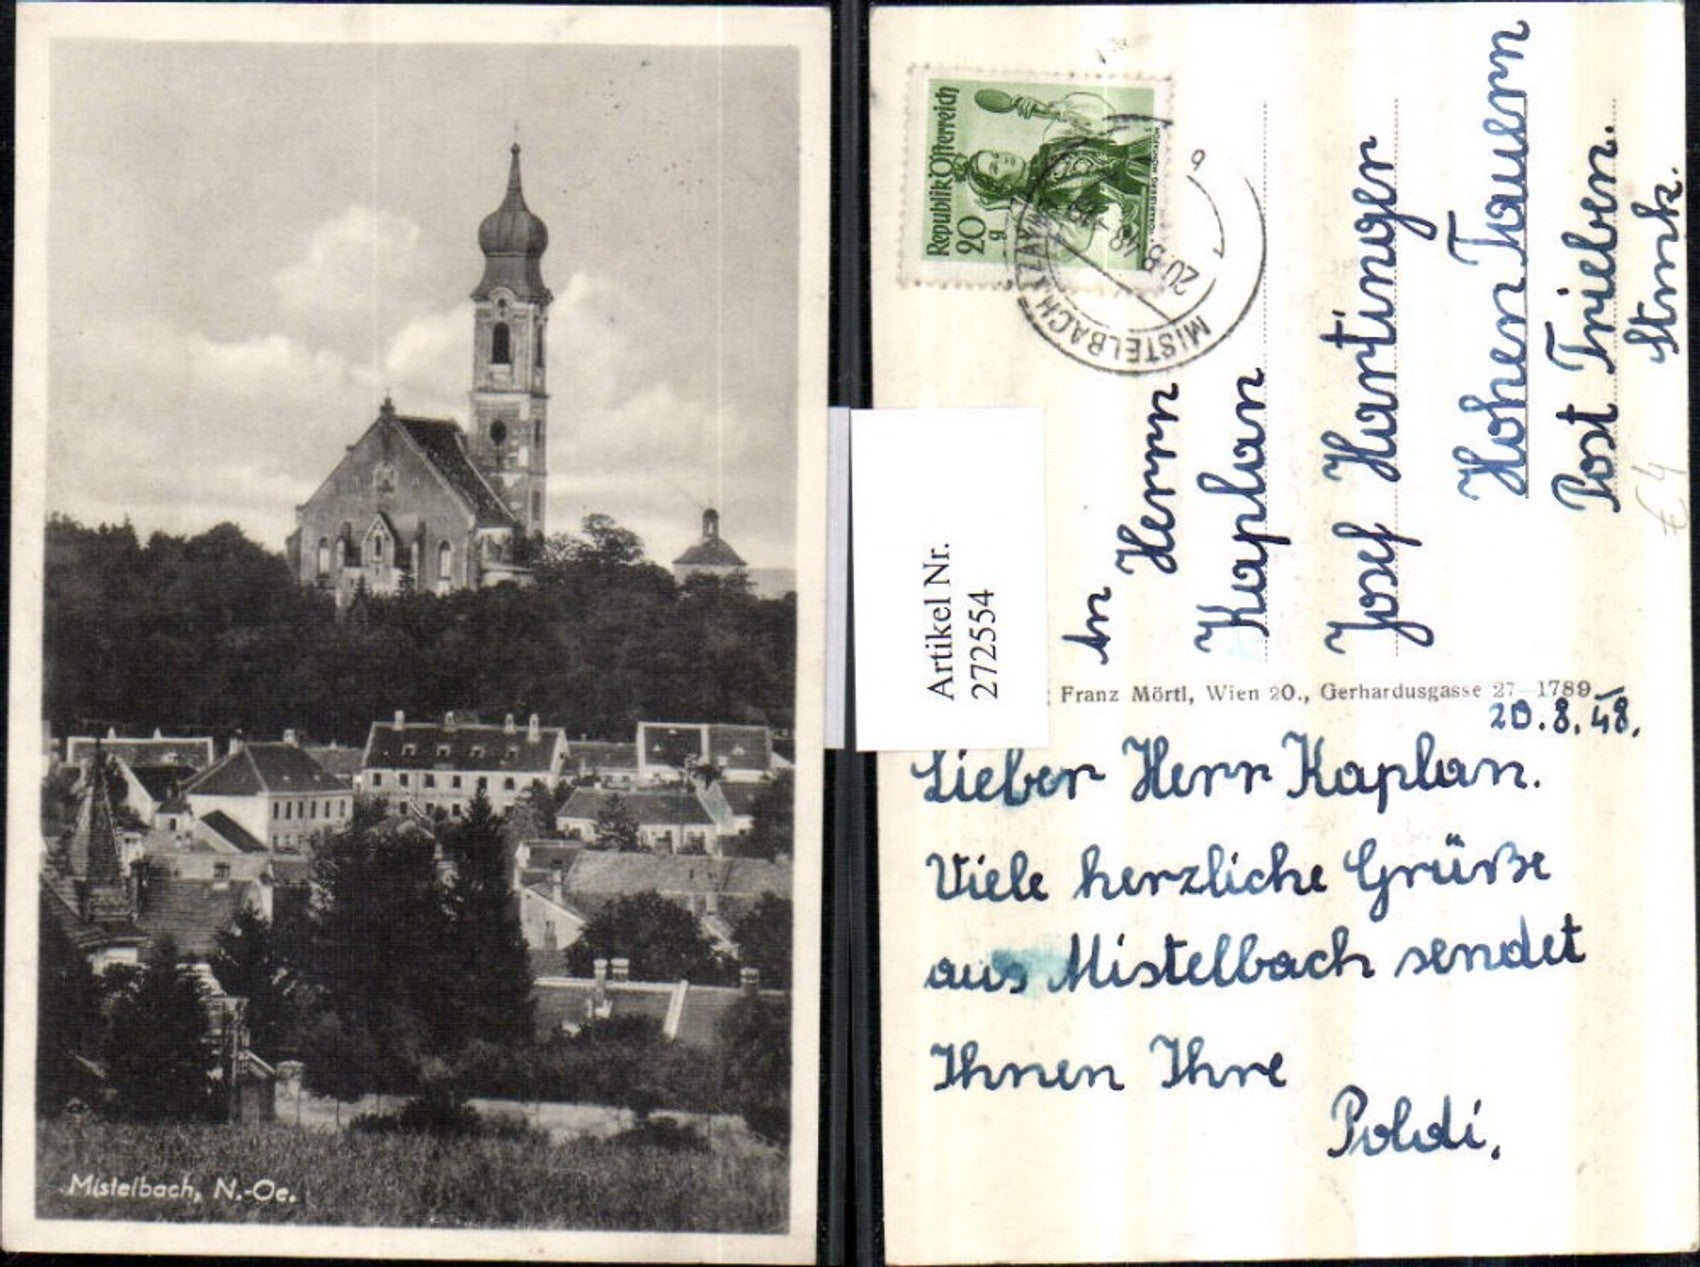 Mistelbach, N.-Oe.
Republik Österreich
20
g
MISTELBACH
20.8.48
b
Artikel Nr.
272554
An
Herrn
Kaplan
Josef Hartinger
Hohen Tauern
Post Trieben.
Stmk.
€ 4
Franz Mörtl, Wien 20., Gerhardusgasse 27 1789
20.8.48.
Lieber Herr Kaplan.
Viele herzliche Grüße
aus Mistelbach sendet
Ihnen Ihre
Poldi.